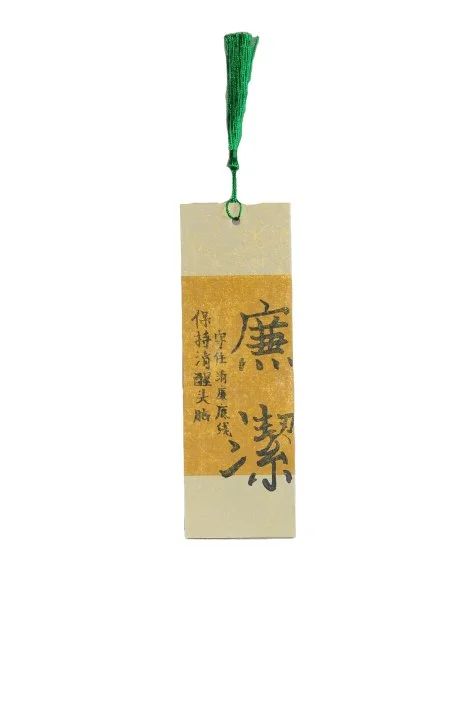 廉潔
守住清廉底线
保持清醒头脑